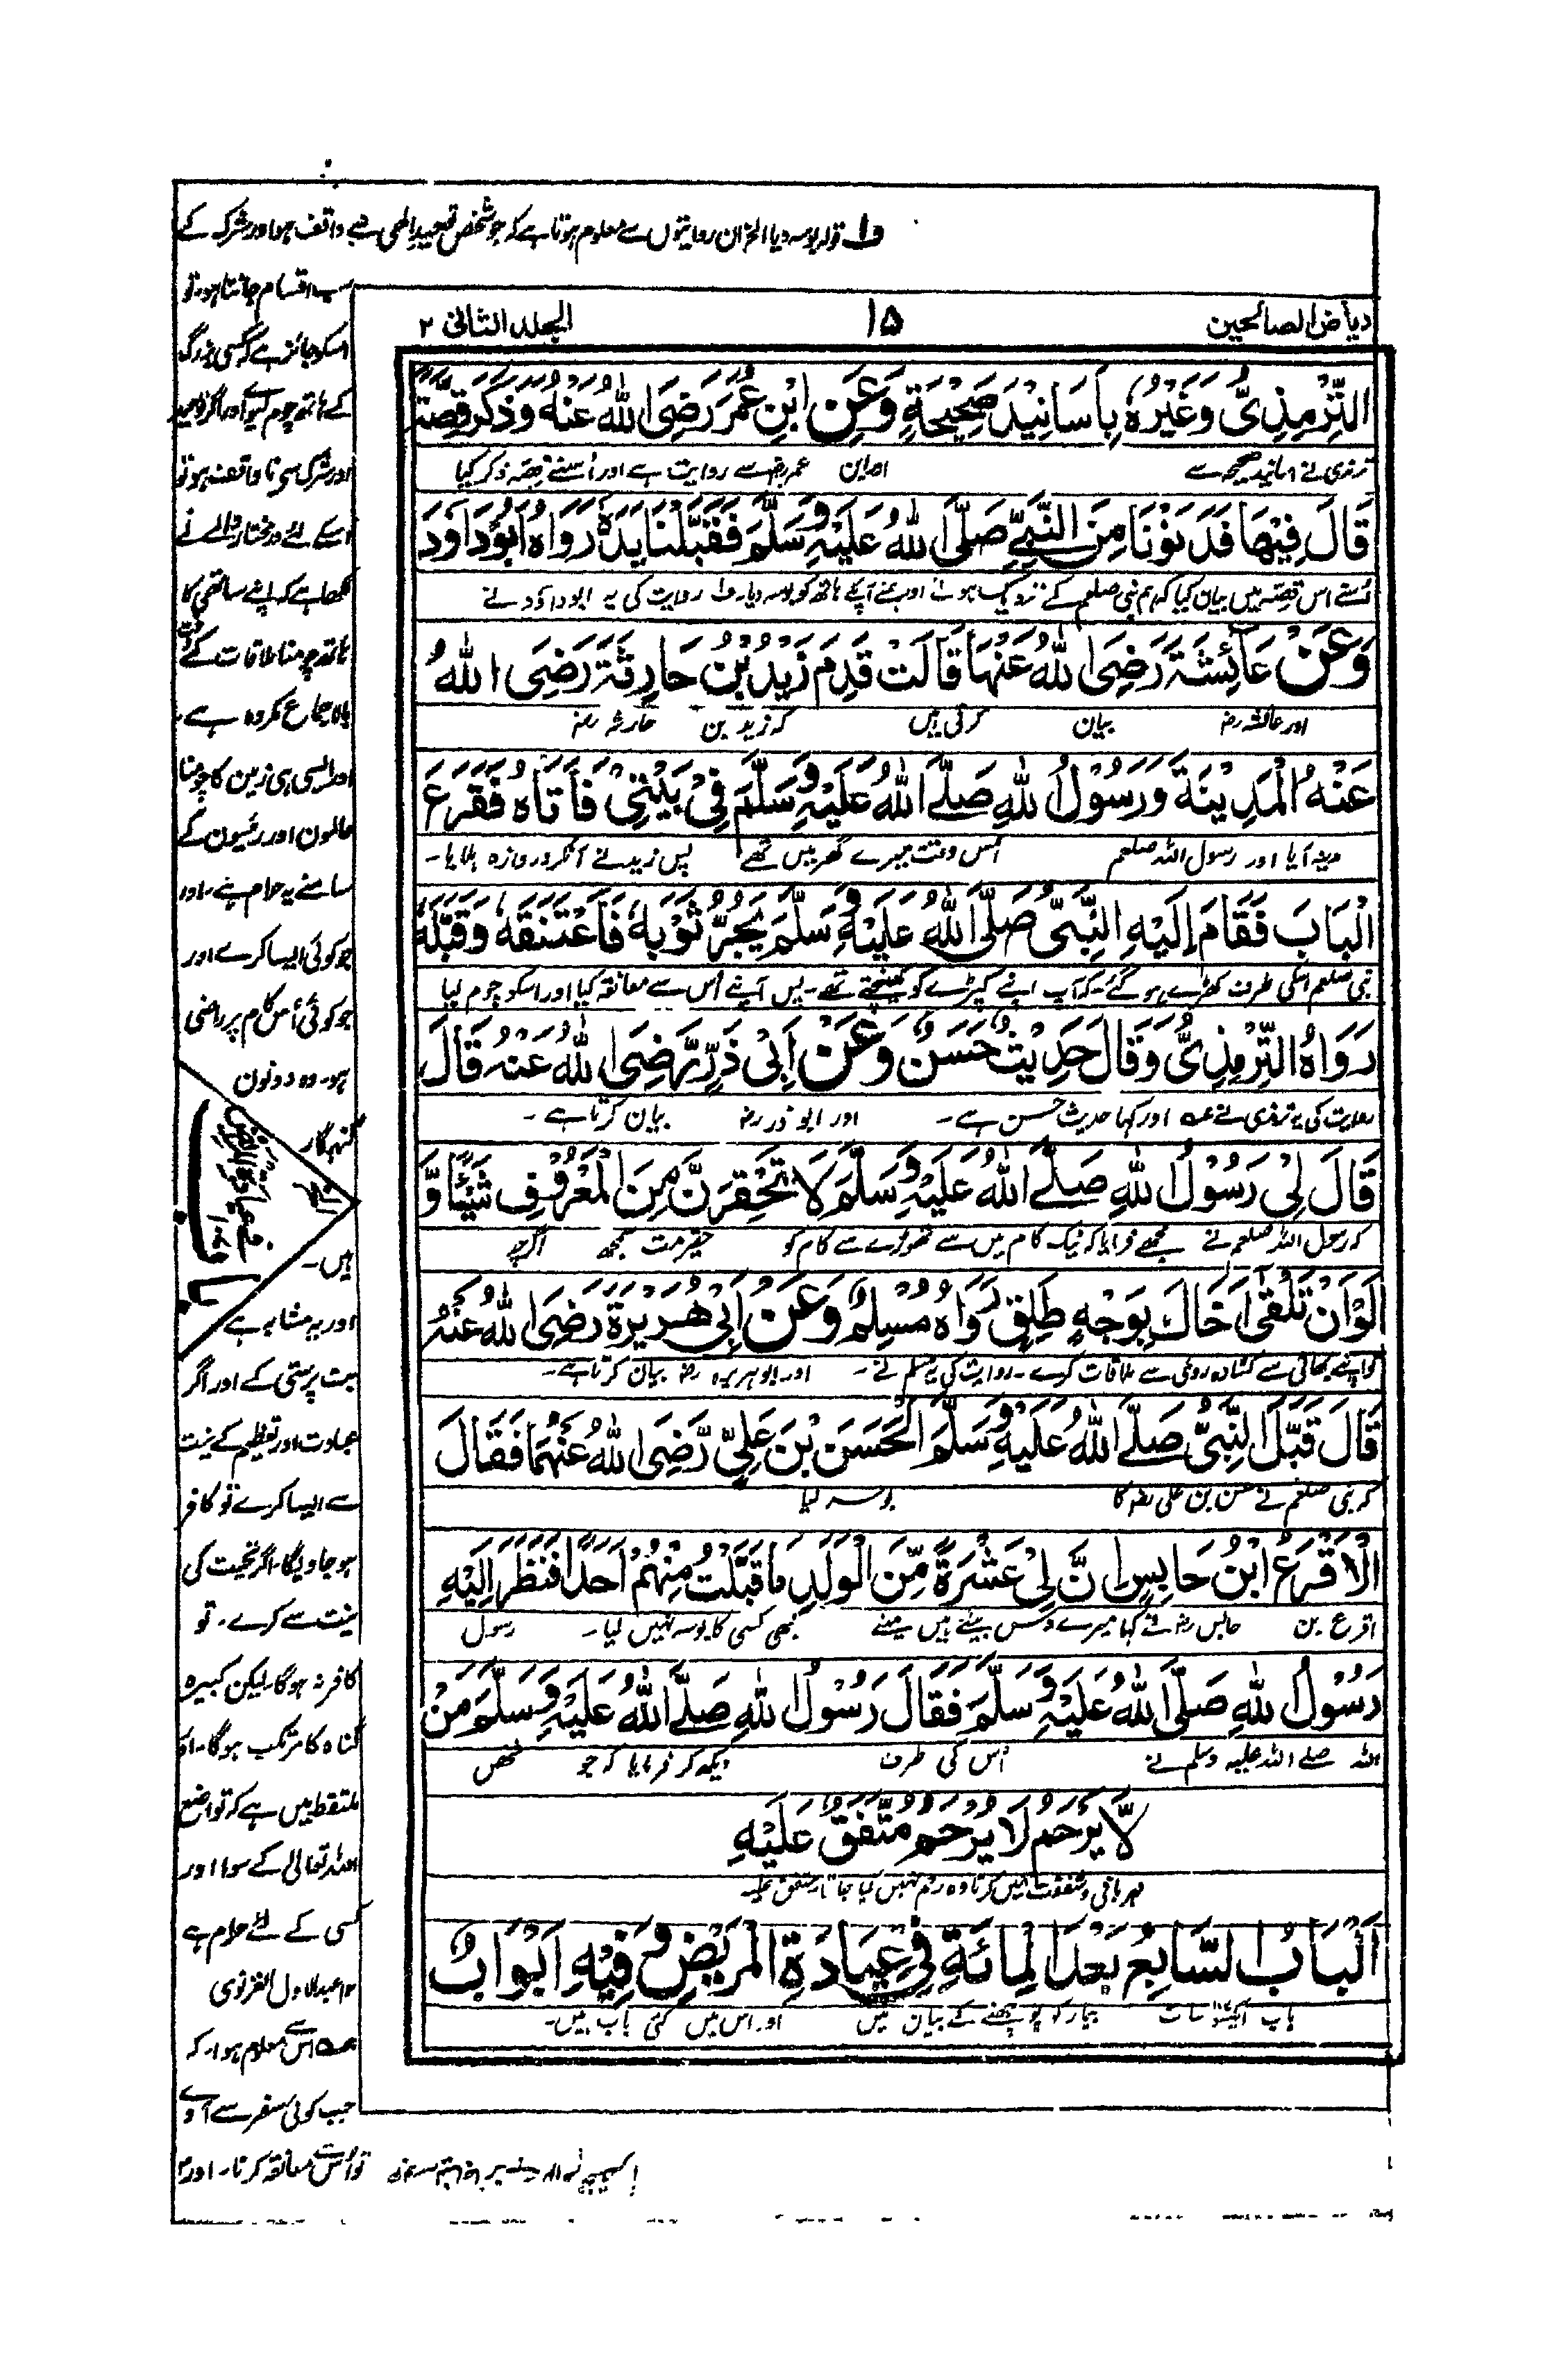 ریاض الصالحین
۱۵
المجلد الثانی ۲
التِّرْمِذِیُّ وَغَیْرُهٗ بِاَسَانِیْدَ صَحِیْحَةٍ وَعَنِ ابْنِ عُمَرَ رَضِیَ اللهُ عَنْهُ وَذَکَرَ قِصَّةً
ترمذی نے اسانید صحیحہ سے اور ابن عمر رضہ سے روایت ہے اور اُسنے قصہ ذکر کیا
قَالَ فِیْهَا فَدَنَوْنَا مِنَ النَّبِیِّ صَلَّی اللهُ عَلَیْهِ وَسَلَّمَ فَقَبَّلْنَا یَدَهٗ رَوَاهُ اَبُوْدَاوٗدَ
اُسنے اس قصہ میں بیان کیا کہ ہم نبی صلعم کے نزدیک ہوئے اور ہمنے آپکے ہاتھ کو بوسہ دیا۔ ف۱ روایت کی یہ ابوداؤد نے
وَعَنْ عَائِشَةَ رَضِیَ اللهُ عَنْهَا قَالَتْ قَدِمَ زَیْدُ بْنُ حَارِثَةَ رَضِیَ اللهُ
اور عائشہ رضہ بیان کرتی ہیں کہ زید بن حارثہ رضہ
عَنْهُ الْمَدِیْنَةَ وَرَسُوْلُ اللهِ صَلَّے اللهُ عَلَیْهِ وَسَلَّمَ فِیْ بَیْتِیْ فَأَتَاهُ فَقَرَعَ
مدینہ آیا اور رسول اللہ صلعم اُس وقت میرے گھر میں تھے پس زید نے آنکر دروازہ ہلایا۔
الْبَابَ فَقَامَ اِلَیْهِ النَّبِیُّ صَلَّی اللهُ عَلَیْهِ وَسَلَّمَ یَجُرُّ ثَوْبَهٗ فَاعْتَنَقَهٗ وَقَبَّلَهٗ
نبی صلعم اسکی طرف کھڑے ہو گئے۔ کہ آپ اپنے کپڑے کو کھینچتے تھے۔ پس آپنے اُس سے معانقہ کیا اور اسکو چوم لیا
رَوَاهُ التِّرْمِذِیُّ وَقَالَ حَدِیْثٌ حَسَنٌ وَعَنْ اَبِیْ ذَرٍّ رَّضِیَ اللهُ عَنْهُ قَالَ
روایت کی یہ ترمذی نے عہ اور کہا حدیث حسن ہے۔ اور ابوذر رضہ بیان کرتا ہے۔
قَالَ لِیْ رَسُوْلُ اللهِ صَلَّے اللهُ عَلَیْهِ وَسَلَّمَ لَا تَحْقِرَنَّ مِنَ الْمَعْرُوْفِ شَیْئًا وَّ
کہ رسول اللہ صلعم نے مجھے فرمایا کہ نیک کام میں سے تھوڑے سے کام کو حقیر مت سمجھ اگرچہ
لَوْ اَنْ تَلْقٰی اَخَاكَ بِوَجْهٍ طَلِقٍ رَوَاهُ مُسْلِمٌ وَعَنْ اَبِیْ هُرَیْرَةَ رَضِیَ اللهُ عَنْهُ
تو اپنے بھائی سے کشادہ روئی سے ملاقات کرے۔ روایت کی یہ مسلم نے۔ اور ابوہریرہ رضہ بیان کرتا ہے۔
قَالَ قَبَّلَ النَّبِیُّ صَلَّے اللهُ عَلَیْهِ وَسَلَّمَ الْحَسَنَ بْنَ عَلِیٍّ رَّضِیَ اللهُ عَنْهُمَا فَقَالَ
کہ نبی صلعم نے حسن بن علی رضہ کا بوسہ لیا
الْاَقْرَعُ ابْنُ حَابِسٍ اِنَّ لِیْ عَشْرَةً مِّنَ الْوَلَدِ مَا قَبَّلْتُ مِنْهُمْ اَحَدًا فَنَظَرَ اِلَیْهِ
اقرع بن حابس رضہ نے کہا میرے دس بیٹے ہیں مینے کبھی کسی کا بوسہ نہیں لیا۔ رسول
رَسُوْلُ اللهِ صَلَّی اللهُ عَلَیْهِ وَسَلَّمَ فَقَالَ رَسُوْلُ اللهِ صَلَّے اللهُ عَلَیْهِ وَسَلَّمَ مَنْ
اللہ صلے اللہ علیہ وسلم نے اُس کی طرف دیکھ کر فرمایا کہ جو شخص
لَّا یَرْحَمْ لَا یُرْحَمْ مُتَّفَقٌ عَلَیْهِ
مہربانی و شفقت نہیں کرتا وہ رحم نہیں کیا جاتا۔ متفق علیہ
اَلْبَابُ السَّابِعُ بَعْدَ الْمِائَةِ فِیْ عِیَادَةِ الْمَرِیْضِ وَفِیْهِ اَبْوَابٌ
باب ایکسو سات بیمار کو پوچھنے کے بیان میں اور اس میں کئی باب ہیں۔
ف۱ قولہ بوسہ دیا الخ ان روایتوں سے معلوم ہوتا ہے کہ جو شخص توحید الٰہی سے واقف ہو اور شرک کے
سب اقسام جانتا ہو۔ تو
اسکو جائز ہے کہ کسی بزرگ
کے ہاتھ چوم لیوے اور اگر توحید
اور شرک سے ناواقف ہو تو
اسکے لئے درمختار والے نے
لکھا ہے کہ اپنے ساتھی کا
ہاتھ چومنا ملاقات کے وقت
بالاجماع مکروہ ہے۔
اور ایسی ہی زمین کا چومنا
عالموں اور رئیسوں کے
سامنے یہ حرام ہے۔ اور
جو کوئی ایسا کرے اور
جو کوئی اُس کام پر راضی
ہو۔ وہ دونوں
گنہگار
ہیں۔
اور یہ مشابہ ہے
بت پرستی کے اور اگر
عبادت اور تعظیم کے نیت
سے ایسا کرے تو کافر
ہو جاویگا۔ اگر تحیت کی
نیت سے کرے۔ تو
کافر نہ ہوگا۔ لیکن کبیرہ
گناہ کا مرتکب ہوگا۔
ملتقط میں ہے کہ تواضع
اللہ تعالیٰ کے سوا اور
کسی کے لئے حرام ہے
۱۲ عبدالاول الغزنوی
عہ اس سے معلوم ہوا۔ کہ
جب کوئی سفر سے آوے
تو اُس سے معانقہ کرنا۔ اور